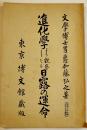 文學博士男爵加藤弘之著
進化學より觀察したる日露の運命
東京博文館藏版